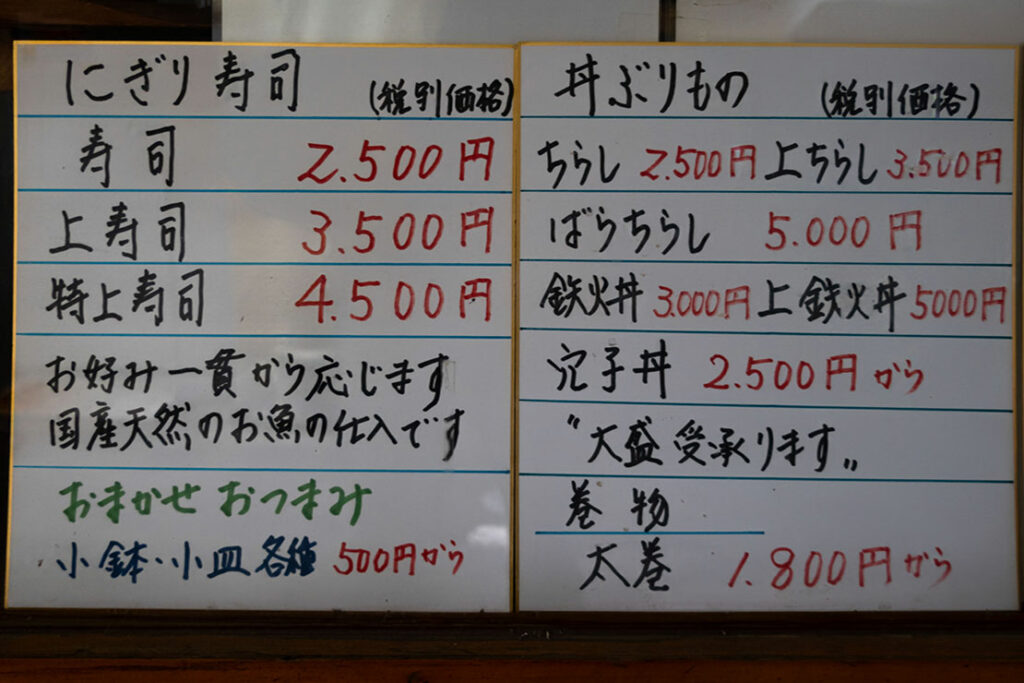 にぎり寿司 (税別価格)
寿司 2.500円
上寿司 3.500円
特上寿司 4.500円
お好み一貫から応じます
国産天然のお魚の仕入です
おまかせ おつまみ
小鉢・小皿各種 500円から
丼ぶりもの (税別価格)
ちらし 2.500円 上ちらし 3.500円
ばらちらし 5.000円
鉄火丼 3.000円 上鉄火丼 5000円
穴子丼 2.500円から
〝大盛受承ります〟
巻物
太巻 1.800円から